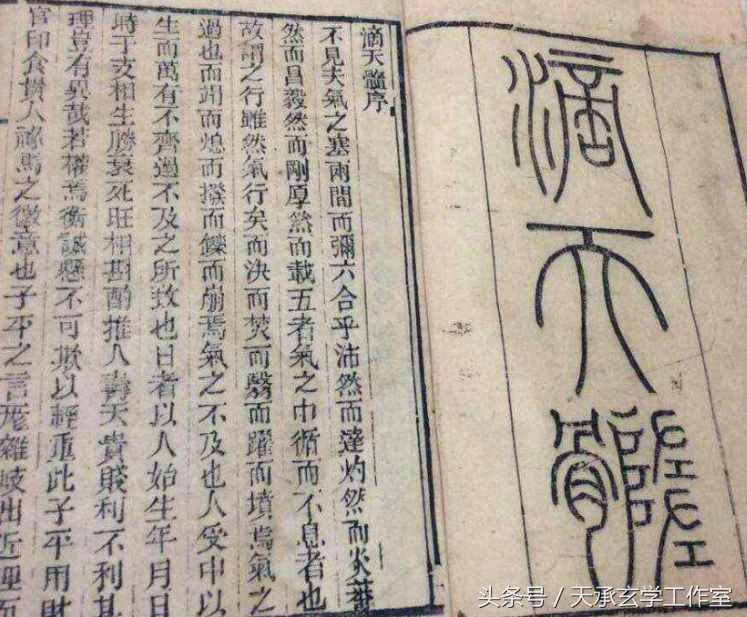 滴天髓
滴天髓序
不見夫氣之塞兩間而彌六合乎沛然而達灼然而炎蓊
然而昌毅然而剛厚然而載五者氣之中循而不息者也
故謂之行雖然氣行矣而決而焚而翳而躍而墳焉氣之
過也而涸而熄而撥而鑠而崩焉氣之不及也人受中以
生而萬有不齊過不及之所致也日者以人始生年月日
時干支相生勝衰死旺相斟酌推人壽夭貴賤利不利其
理豈有異哉若權焉衡誠懸不可欺以輕重此子平用財
官印食貫人祿馬之微意也子平之言厖雜歧出近理而
头条号/天承玄学工作室